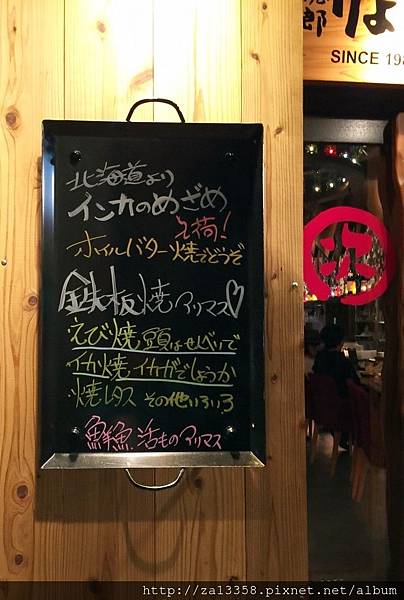 郎
SINCE 198
北海道より
インカのめざめ
入荷!
ホイルバター焼でどうぞ
鉄板焼アリマス♡
えび焼 頭はせんべいで
イカ焼、イカガでしょうか
焼レタス その他いろいろ
鮮魚 活ものアリマス
http://za13358.pixnet.net/album